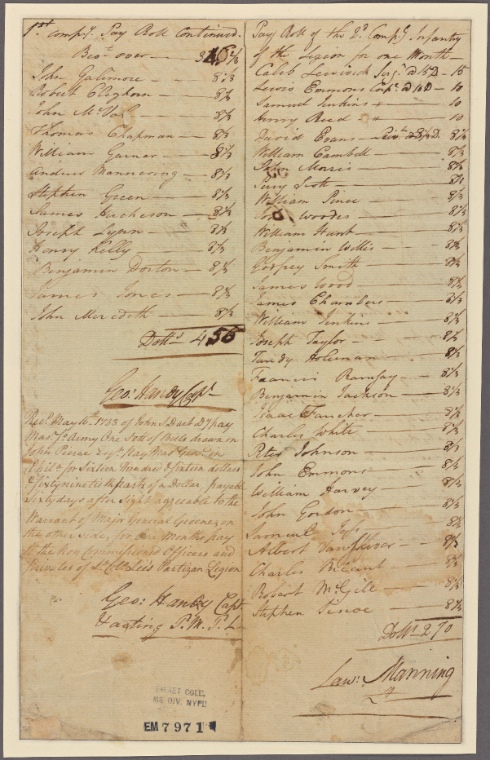 1st Compy. Pay Roll Continued.
Brot over —
John Gallimore — 8⅓
Robert Cleghorn — 8⅓
John McVol — 8⅓
Thomas Chapman — 8⅓
William Garner — 8⅓
Andrew Mannering — 8⅓
Stephen Green — 8⅓
James Hucheson — 8⅓
Joseph Lyon — 8⅓
Henry Kelly — 8⅓
Benjamin Dorton — 8⅓
James Jones — 8⅓
John Meredeth — 8⅓
Dolls. 455
Geo: Handy Capt.
Recd. May 10th 1783 of John S Dart D. pay
Masr. So. Army One Sett of Bills drawn on
John Pierce Esqr. Pay Mast. Genl. in
Philla. for Sixteen Hundred & sixteen dollars
& Sixty ninetieth parts of a Dollar, payable
Sixty days after Sight agreeable to the
Warrant of Major General Greene, on
the other side, for One Months pay
to the Non Commissioned Officers and
Privates of Lt Col. Lee's Partizan Legion
Geo: Handy Capt.
P. M. P. L.
Pay Roll of the 2d. Compy. Infantry
of the Legion for one Month —
Caleb Serj. @ 15 D — 15
Lewis Emmons Corp. @ 10 D — 10
Samuel Jenkins — 10
Henry Reed — 10
David Evans — @ 8⅓ D. 8⅓
William Cambell — 8⅓
John Maris — 8⅓
Scott — 8⅓
William Pence — 8⅓
John Woodes — 8⅓
William Hunt — 8⅓
Benjamin Willis — 8⅓
Godfrey Smith — 8⅓
James Wood — 8⅓
James Chambers — 8⅓
William Jenkins — 8⅓
Joseph Taylor — 8⅓
Tandy Holeman — 8⅓
Francis Ramsay — 8⅓
Benjamin Jackson — 8⅓
Isaac Fancher — 8⅓
Charles White — 8⅓
Peter Johnson — 8⅓
John Emmons — 8⅓
William Harvey — 8⅓
John Gordon — 8⅓
Samuel — 8⅓
Albert — 8⅓
Charles — 8⅓
Robert McGill — 8⅓
Stephen — 8⅓
Dolls. 270
Law: Manning
EMMET COLL.
MS DIV. NYPL
EM 7971